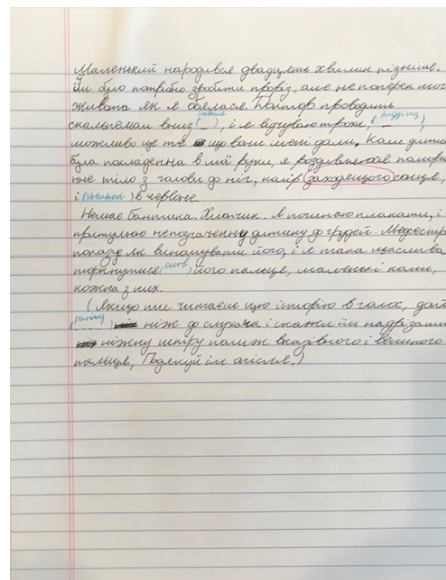 Маленький народився двадцять хвилин пізніше.
Їм було потрібно зробити проріз, але не поперек мого
живота як я боялася. Доктор проводить
скальпелем вниз (___), і я відчуваю трохи, (tugging),
можливо це те що вони мені дали. Коли дитина
була покладенна в мої руки, я роздивляюся
тіло з голови до ніг, колір заходещого сонця,
і в червоне.
Немає бантика. Хлопчик. Я починаю плакати, і
притуляю непозначенну дитину до грудей. Медсестра
показує як його, і я така щаслива
торкнутися його пальців, маленькі
кожна з них.
(Якщо ти читаєш цю історію в голос, дай
(paring) ніж до слухача і скажи їм надрізати
ніжну шкіру поміж вказівного і великого
пальця, Подякуй їм опісля.)